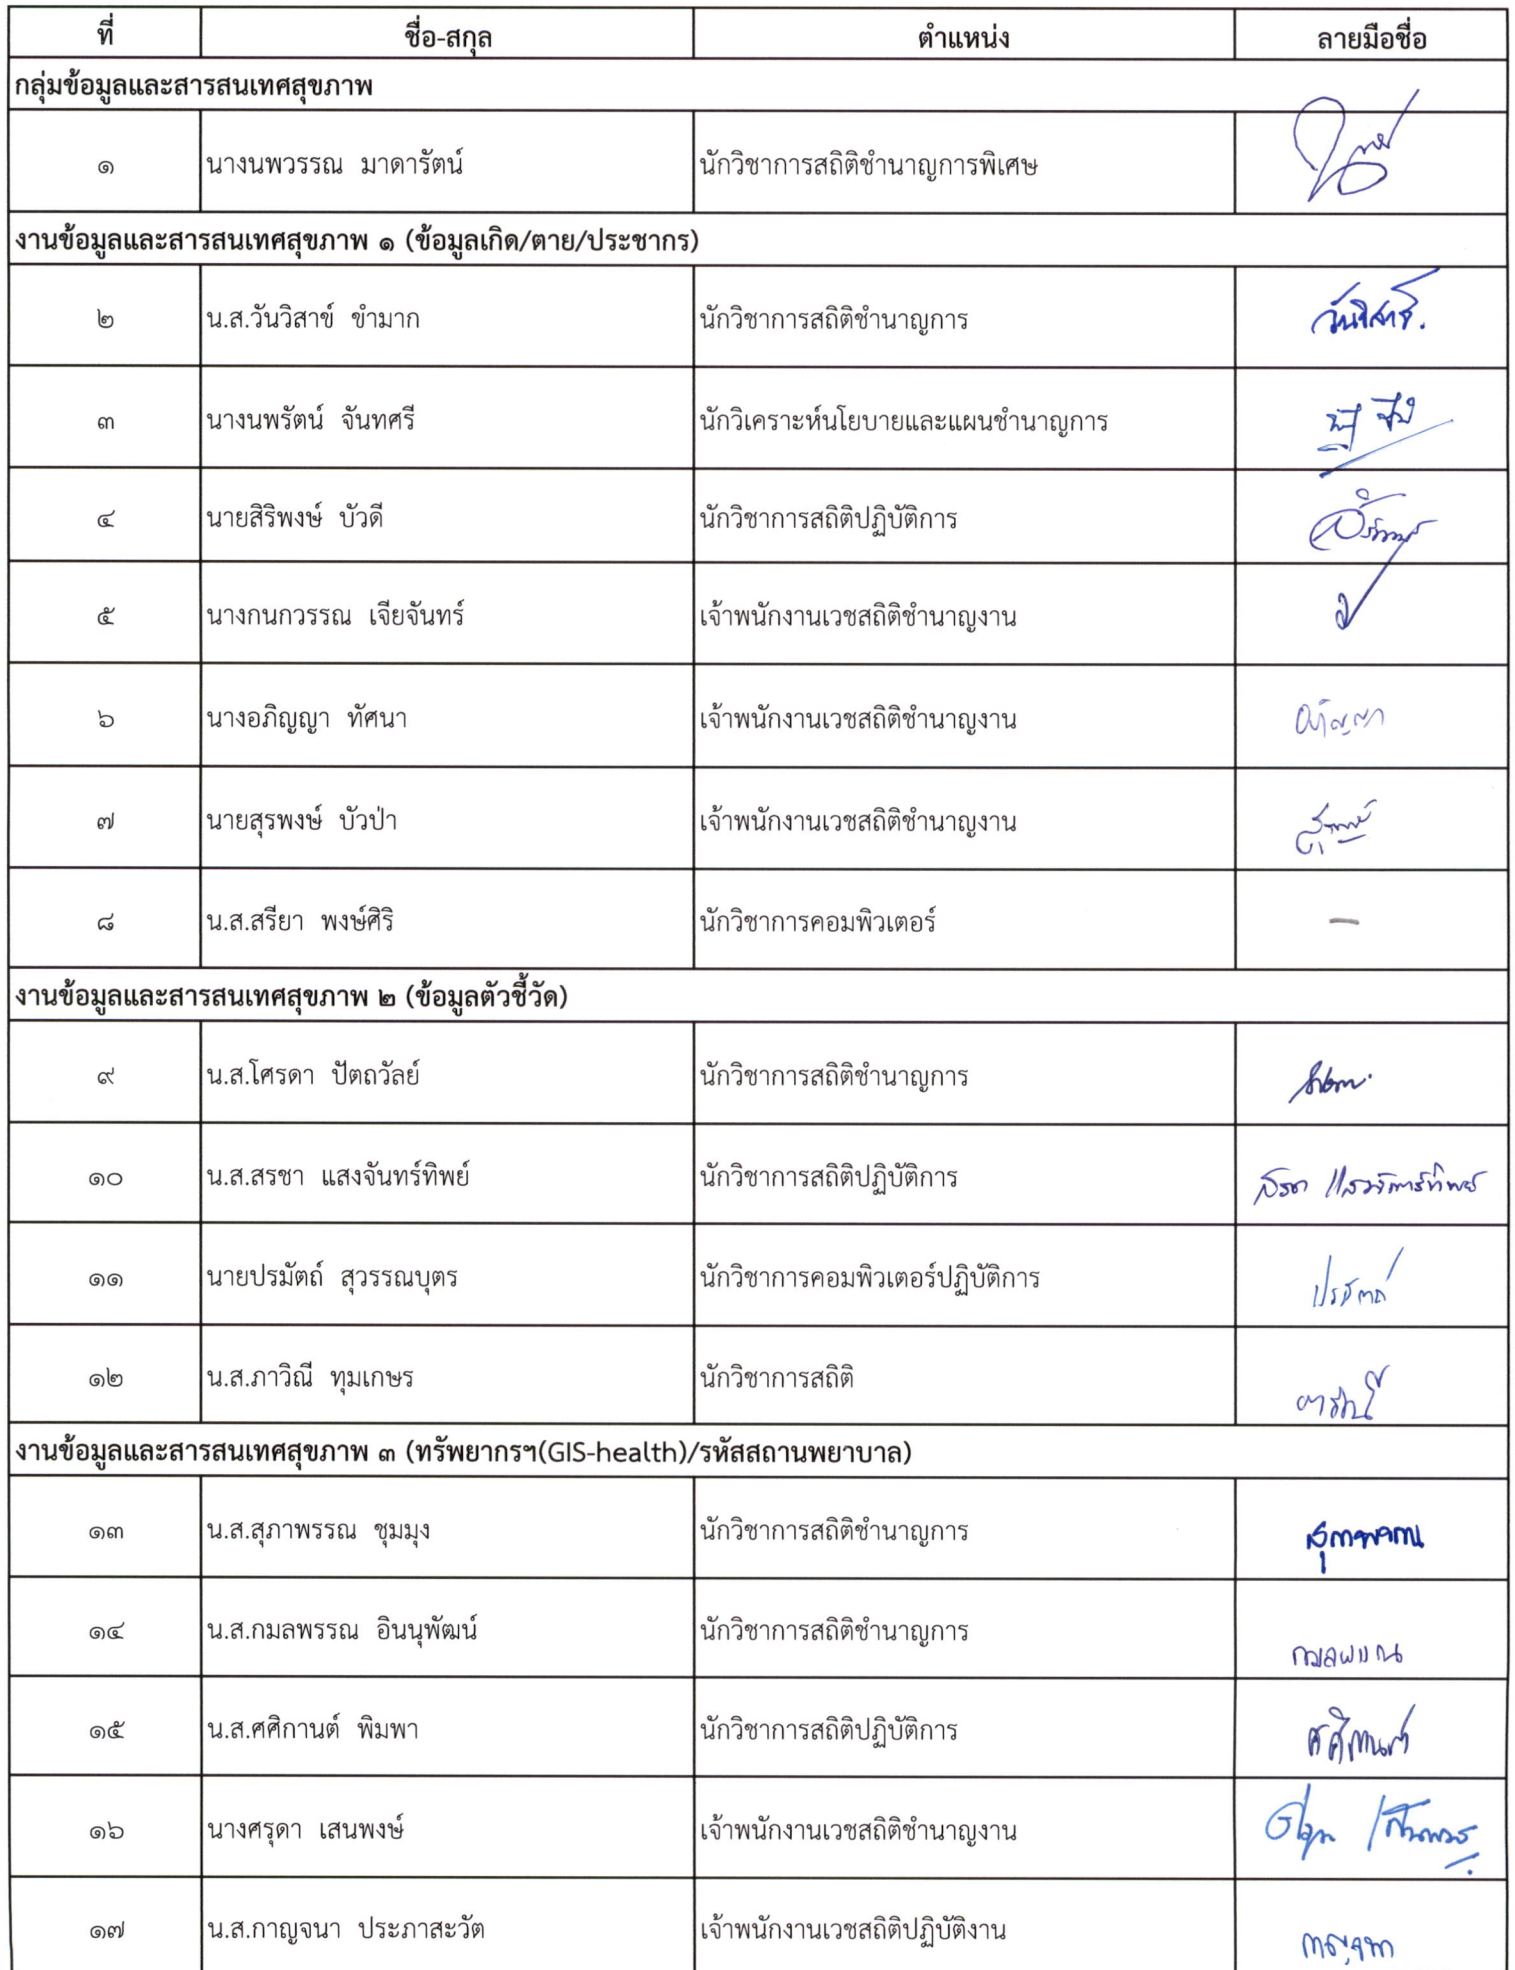 ที่ ชื่อ-สกุล ตำแหน่ง ลายมือชื่อ
กลุ่มข้อมูลและสารสนเทศสุขภาพ
๑ นางนพวรรณ มาดารัตน์ นักวิชาการสถิติชำนาญการพิเศษ
งานข้อมูลและสารสนเทศสุขภาพ ๑ (ข้อมูลเกิด/ตาย/ประชากร)
๒ น.ส.วันวิสาข์ ขำมาก นักวิชาการสถิติชำนาญการ วันวิสาข์.
๓ นางนพรัตน์ จันทศรี นักวิเคราะห์นโยบายและแผนชำนาญการ
๔ นายสิริพงษ์ บัวดี นักวิชาการสถิติปฏิบัติการ
๕ นางกนกวรรณ เจียจันทร์ เจ้าพนักงานเวชสถิติชำนาญงาน
๖ นางอภิญญา ทัศนา เจ้าพนักงานเวชสถิติชำนาญงาน อภิญญา
๗ นายสุรพงษ์ บัวป่า เจ้าพนักงานเวชสถิติชำนาญงาน สุรพงษ์
๘ น.ส.สรียา พงษ์ศิริ นักวิชาการคอมพิวเตอร์ –
งานข้อมูลและสารสนเทศสุขภาพ ๒ (ข้อมูลตัวชี้วัด)
๙ น.ส.โศรดา ปัตถวัลย์ นักวิชาการสถิติชำนาญการ
๑๐ น.ส.สรชา แสงจันทร์ทิพย์ นักวิชาการสถิติปฏิบัติการ สรชา แสงจันทร์ทิพย์
๑๑ นายปรมัตถ์ สุวรรณบุตร นักวิชาการคอมพิวเตอร์ปฏิบัติการ ปรมัตถ์
๑๒ น.ส.ภาวิณี ทุมเกษร นักวิชาการสถิติ ภาวิณี
งานข้อมูลและสารสนเทศสุขภาพ ๓ (ทรัพยากรฯ(GIS-health)/รหัสสถานพยาบาล)
๑๓ น.ส.สุภาพรรณ ชุมมุง นักวิชาการสถิติชำนาญการ สุภาพรรณ
๑๔ น.ส.กมลพรรณ อินนุพัฒน์ นักวิชาการสถิติชำนาญการ กมลพรรณ
๑๕ น.ส.ศศิกานต์ พิมพา นักวิชาการสถิติปฏิบัติการ ศศิกานต์
๑๖ นางศรุดา เสนพงษ์ เจ้าพนักงานเวชสถิติชำนาญงาน ศรุดา เสนพงษ์
๑๗ น.ส.กาญจนา ประภาสะวัต เจ้าพนักงานเวชสถิติปฏิบัติงาน กาญจนา